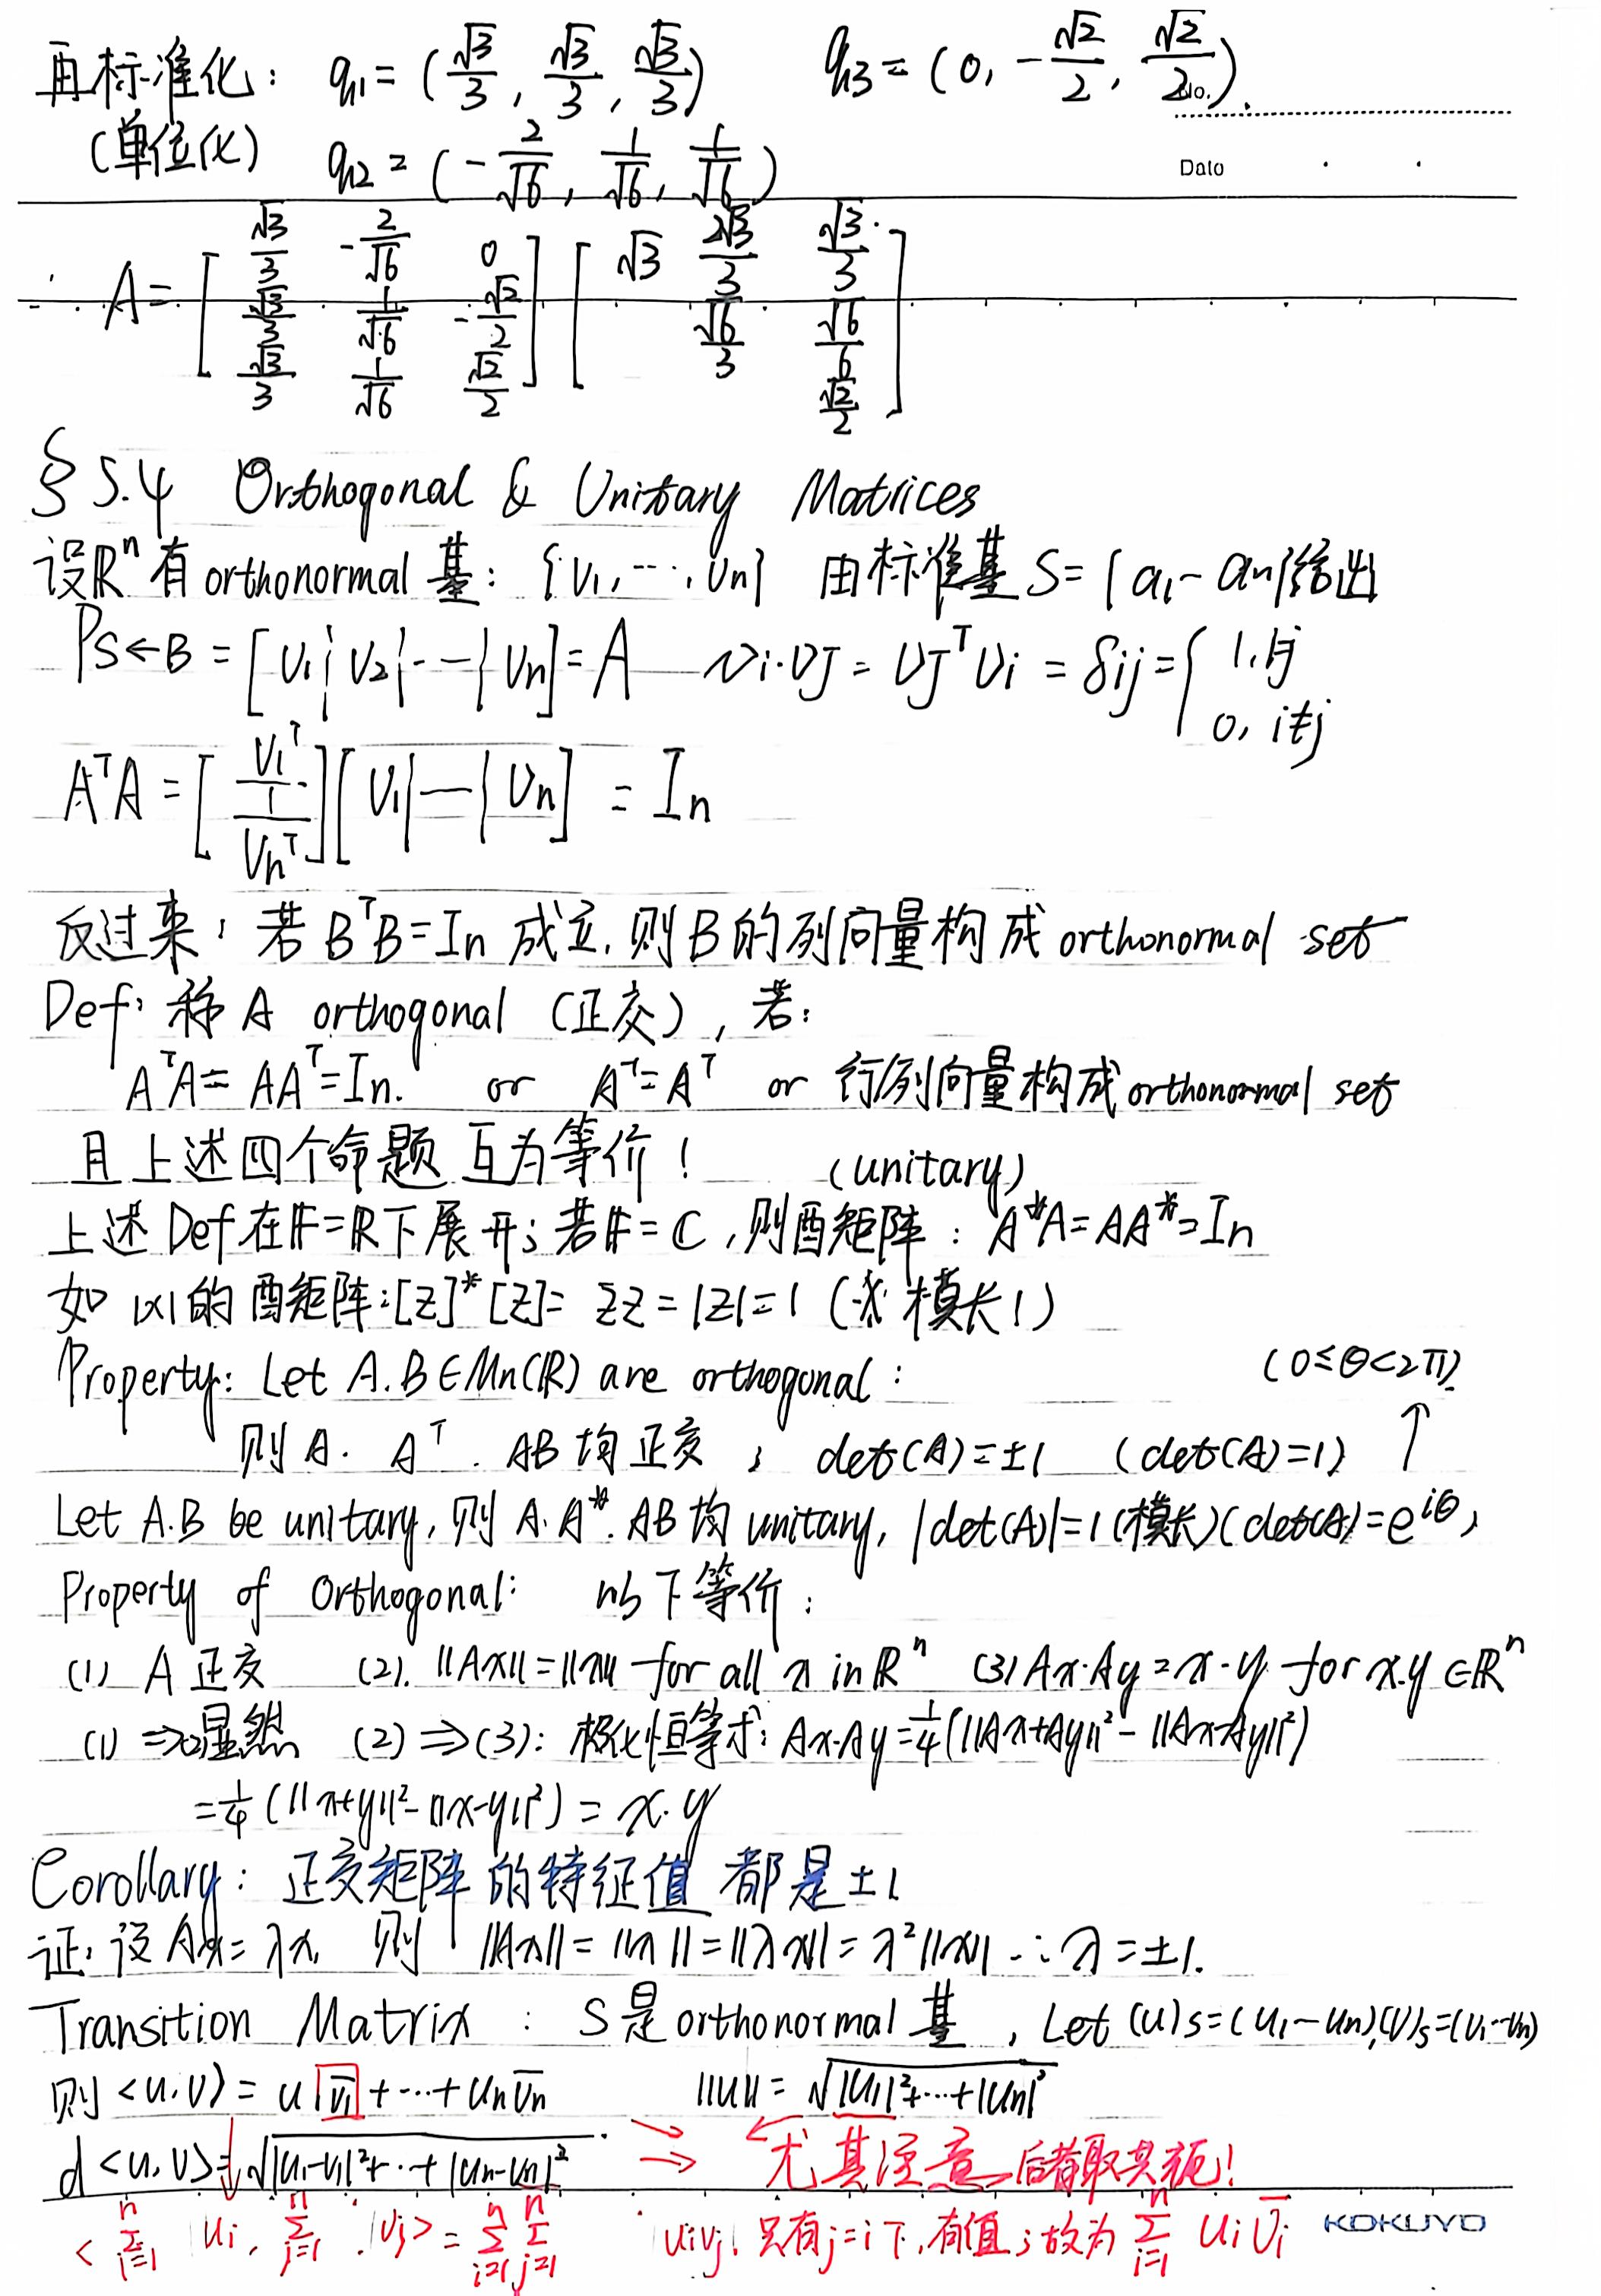 再标准化: q₁ = (√3/3, √3/3, √3/3)   q₃ = (0, -√2/2, √2/2).
No.
(单位化)   q₂ = (-2/√6, 1/√6, 1/√6)
Date
∴ A = [√3/3 -2/√6 0; √3/3 1/√6 -√2/2; √3/3 1/√6 √2/2] [√3 2√3/3 √3/3; √6/3 √6/6; √2/2]
§5.4 Orthogonal & Unitary Matrices
设ℝⁿ有orthonormal基: {v₁,…,vn} 由标准基 S={a₁-an}给出
P S←B = [v₁|v₂|--|vn] = A — vi·vj = vjᵀvi = δij = { 1, i=j
0, i≠j
AᵀA = [v₁ᵀ / | / vnᵀ][v₁|—|vn] = In
反过来: 若BᵀB=In 成立, 则B的列向量构成 orthonormal set
Def: 称A orthogonal (正交), 若:
AᵀA = AAᵀ = In. or A⁻¹=Aᵀ or 行列向量构成orthonormal set
且上述四个命题 互为等价!
(unitary)
上述Def在𝔽=ℝ下展开; 若𝔽=ℂ, 则酉矩阵: A*A=AA*=In
如 1x1的酉矩阵:[z]*[z]= z̄z = |z|=1 (模长1)
Property: Let A.B∈Mn(ℝ) are orthogonal:
(0≤θ<2π)
则 A. Aᵀ. AB 均正交; det(A)=±1 (det(A)=1) ↑
Let A.B be unitary, 则 A. A*. AB均 unitary, |det(A)|=1(模长)(det(A)=e^{iθ},
Property of Orthogonal: 以下等价:
(1) A正交 (2). ‖Ax‖=‖x‖ for all x in ℝⁿ (3) Ax·Ay=x·y for x.y∈ℝⁿ
(1)⇒(2)显然 (2)⇒(3): 极化恒等式: Ax·Ay=1/4(‖Ax+Ay‖²-‖Ax-Ay‖²)
=1/4(‖x+y‖²-‖x-y‖²) = x·y
Corollary: 正交矩阵的特征值都是±1
证: 设Ax=λx, 则 ‖Ax‖=‖x‖=‖λx‖=λ²‖x‖ ∴λ=±1.
Transition Matrix: S是orthonormal基, Let (u)s=(u₁-un),(v)s=(v₁-vn)
则<u,v>=u₁v̄₁+…+unv̄n   ‖u‖=√|u₁|²+…+|un|²
d<u,v>=√|u₁-v₁|²+…+|un-vn|² ⇒ 尤其注意后者取共轭!
< Σⁿᵢ₌₁ ui, Σⁿⱼ₌₁ vj> = Σⁿᵢ₌₁Σⁿⱼ₌₁ uivj, 只有j=i下, 有值; 故为 Σⁿᵢ₌₁ uiv̄i
KOKUYO